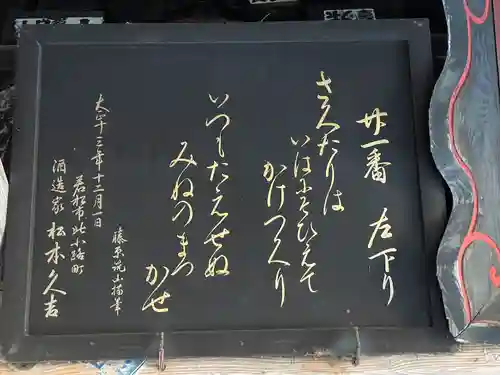 廿一番　左下り
さくたりは
いはにそひえて
かけつくり
いつもたえせぬ
みねのまつ
かせ
藤原
大正十三年十二月一日
若松市北小路町
酒造家 松本久吉